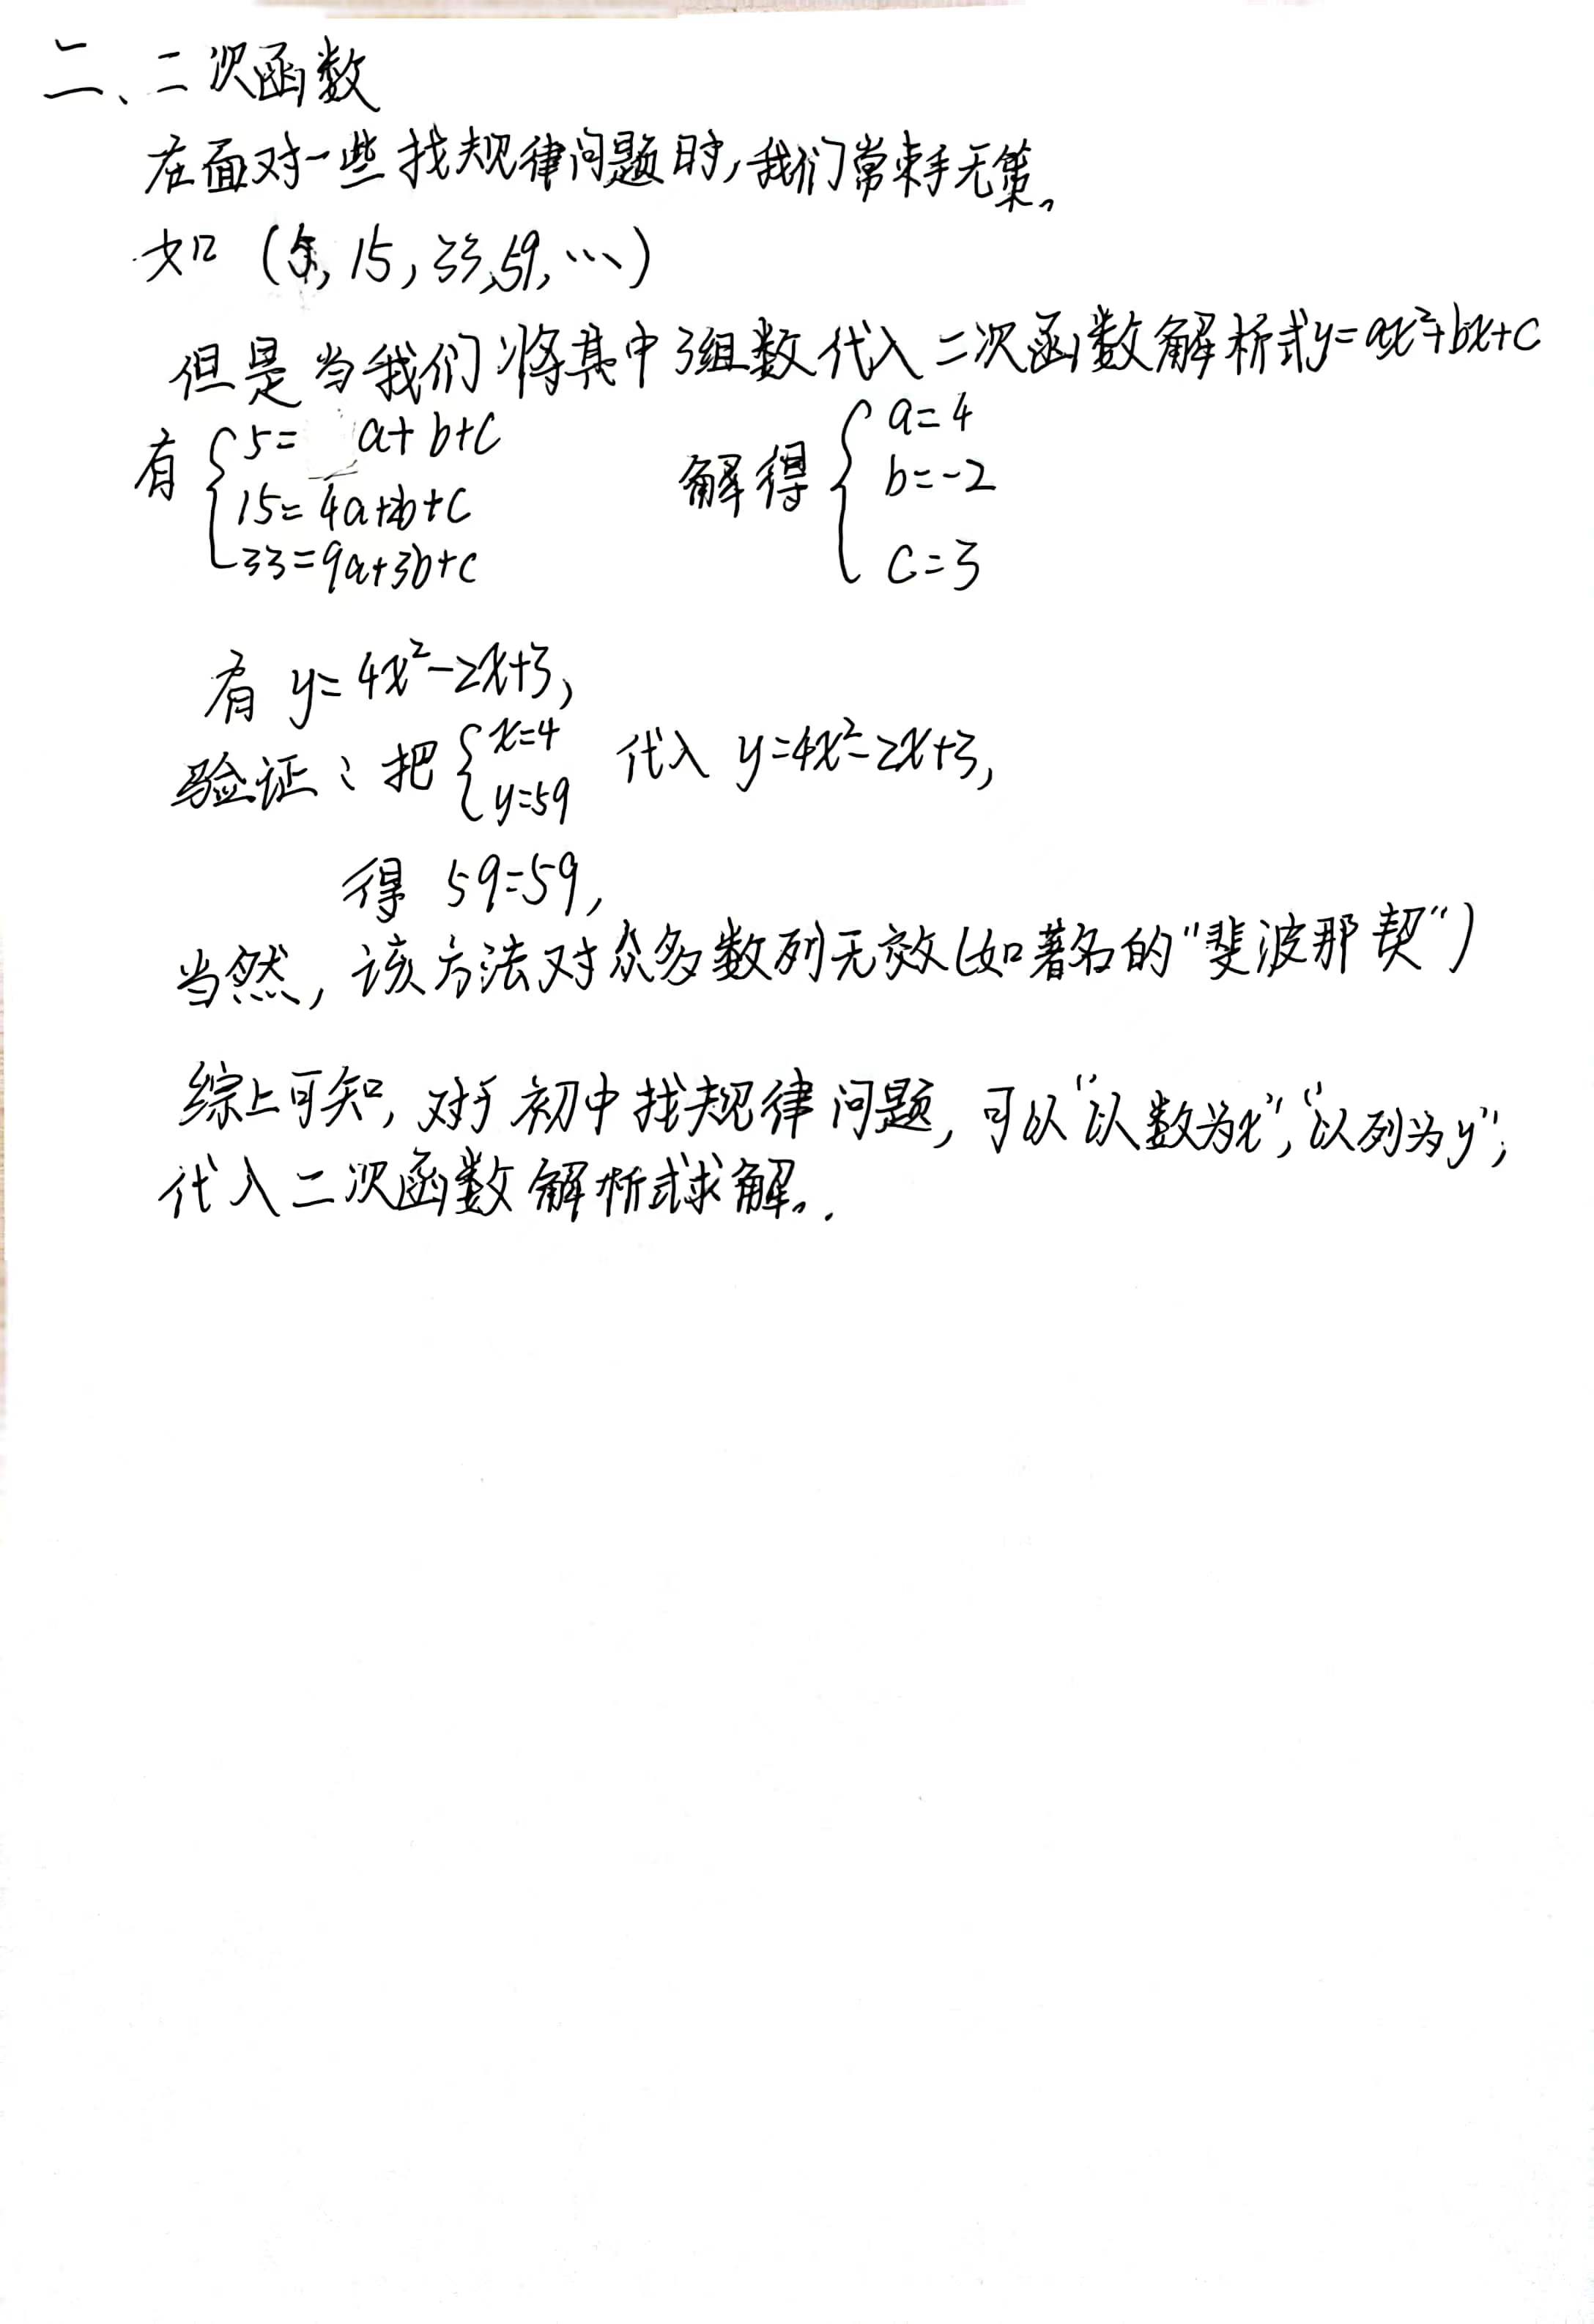 二、二次函数
在面对一些找规律问题时,我们常束手无策。
如 (5, 15, 33, 59, …)
但是当我们将其中3组数代入二次函数解析式y=ax²+bx+c
有 { 5= a+b+c
15=4a+2b+c
33=9a+3b+c
解得 { a=4
b=-2
c=3
有 y=4x²-2x+3,
验证:把 { x=4
y=59 代入 y=4x²-2x+3,
得 59=59,
当然,该方法对众多数列无效(如著名的"斐波那契")
综上可知,对于初中找规律问题,可以"以数为x","以列为y",
代入二次函数解析式求解。.